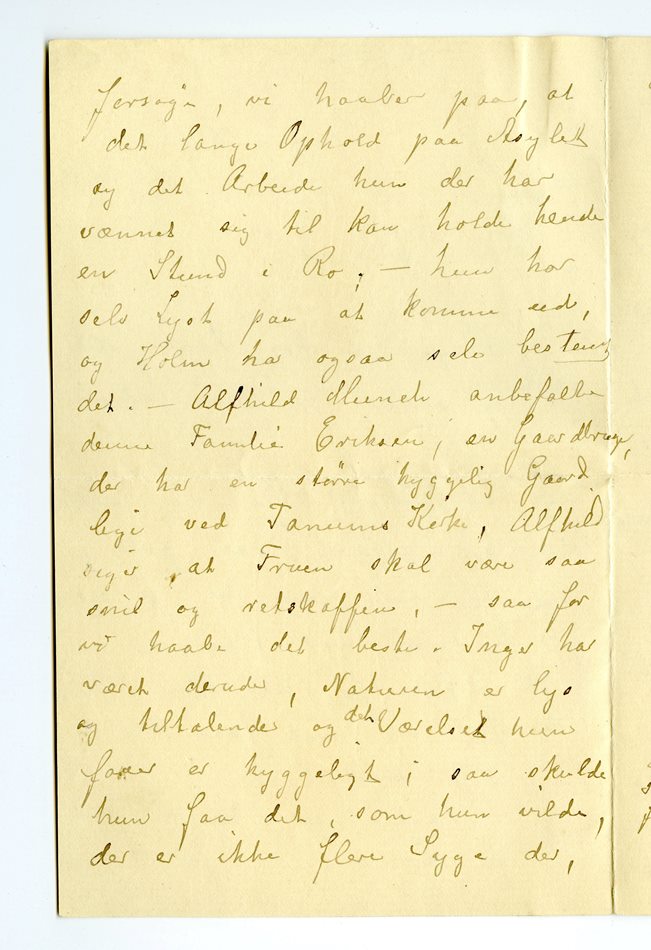 forsøge, vi haaber paa, at
det lange Ophold paa Asylet
og det Arbeide hun der har
vænnet sig til kan holde hende
en Stund i Ro; — hun har
selv Lyst paa at komme ud,
og Holm har ogsaa selv bestemt
det. — Alfhild Munch anbefalte
denne Familie Eriksen; en Gaardbruger,
der har en større hyggelig Gaard
lige ved Tanums Kirke, Alfhild
siger, at Fruen skal være saa
snil og retskaffen, — saa faar
vi haabe det beste. Inger har
været derude, Naturen er lys
og tiltalende og det Værelset hun
faaer er hyggeligt; saa skulde
hun faa det, som hun vilde,
der er ikke flere Syge der,